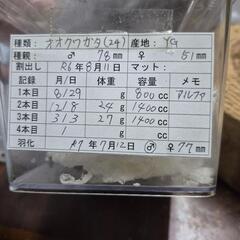 種類: オオクワガタ(24) 産地: YG
種親: ♂ 78 mm ♀ 51 mm
割出し R6年8月11日 マット:
記録 月/日 体重 容量 メモ
1本目 8/29 g 800cc アルファ
2本目 12/8 24g 1400cc
3本目 3/3 27g 1400cc
4本目 / g
羽化 R7年7月12日 ♂ ♀ 77mm